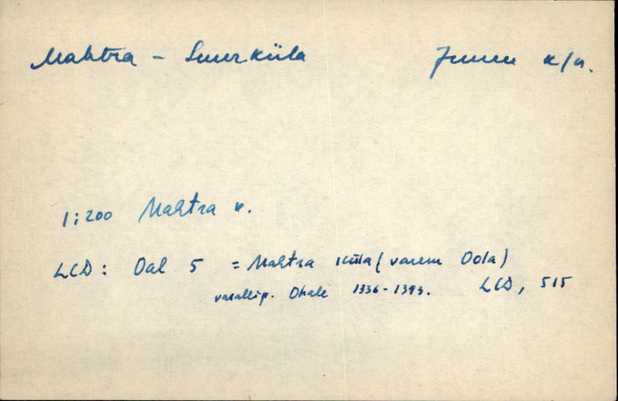 Mahtra - Suurküla Juuru k/n.
1:200 Mahtra v.
LCD: Oal 5 = Mahtra küla (varem Oola)
vasallip. Ohale 1336-1393. LCD, 515